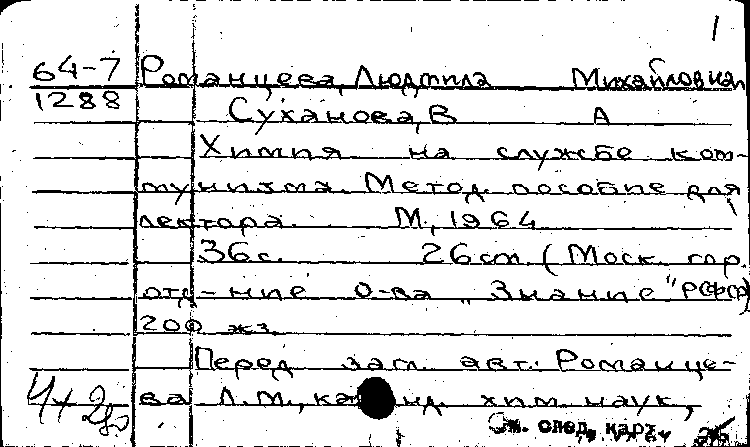 1
64-7 Романцева, Людмила Михайловна
1288 Суханова, В А
Химия на службе ком-
мунизма. Метод. пособие для
лектора. М., 1964
36 с. 26 см. (Моск. гор.
отд-ние о-ва "Знание" РСФСР)
200 экз.
Перед загл. авт.: Романце-
ва Л.М., канд. хим. наук,
См. след. карт.